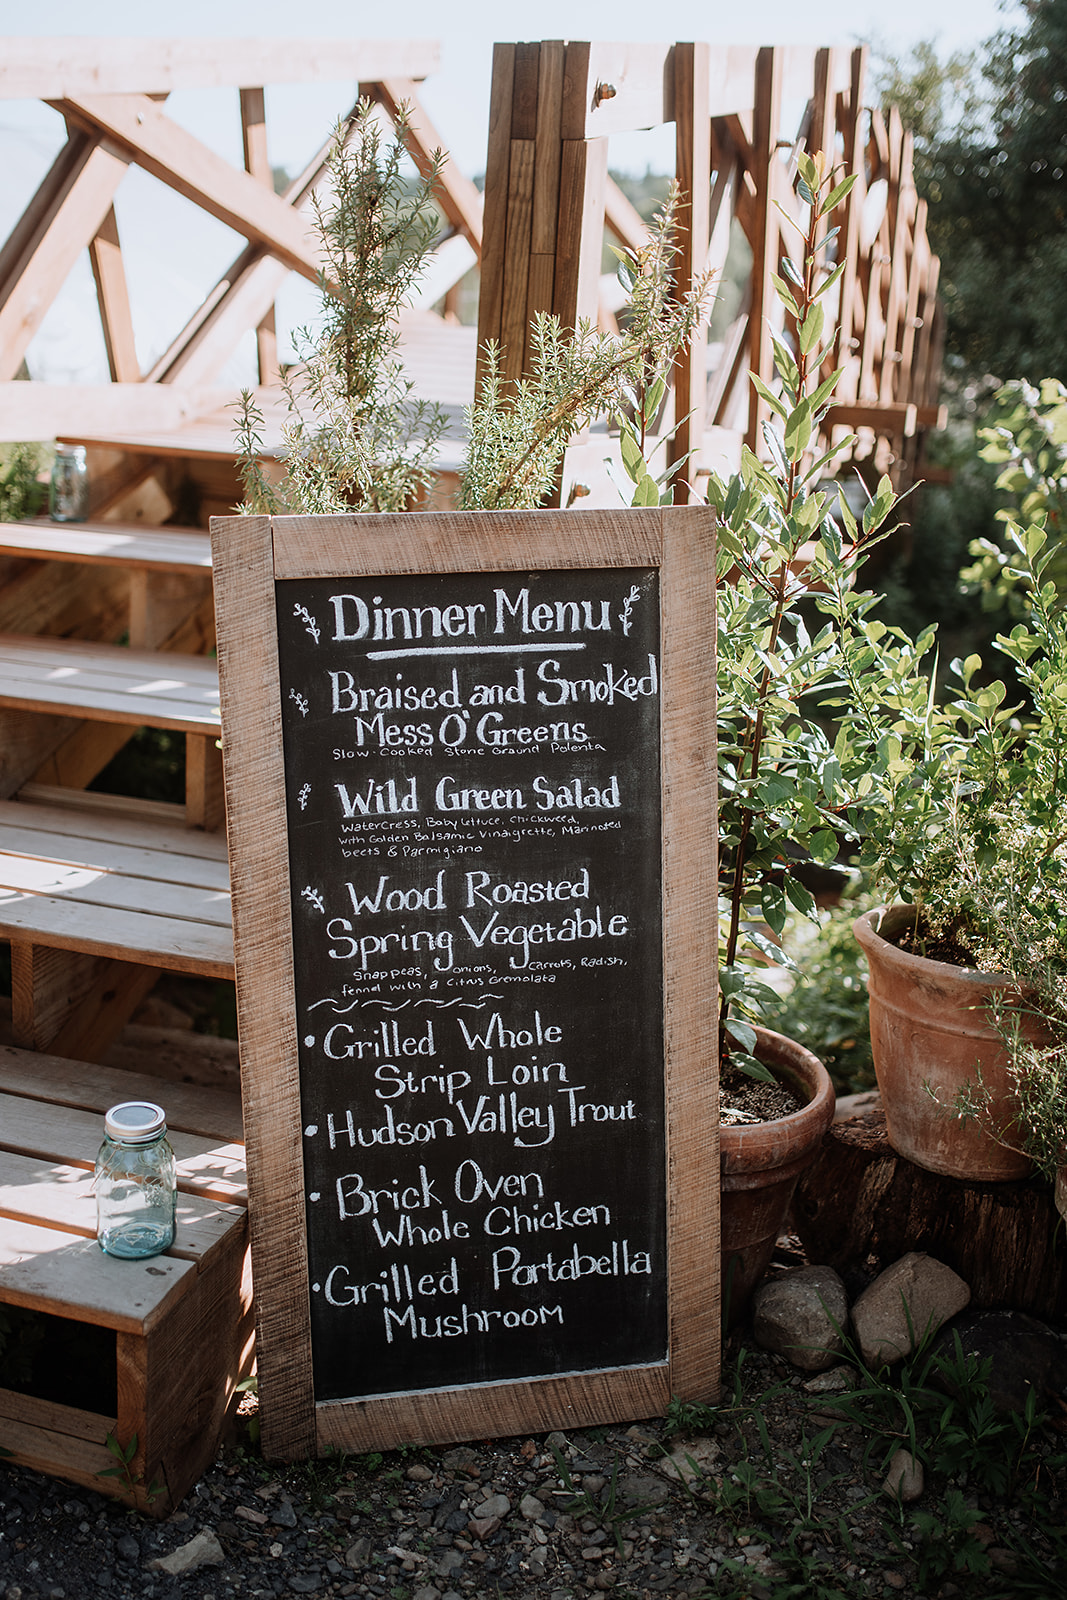 Dinner Menu
Braised and Smoked
Mess O' Greens
Slow-Cooked Stone Ground Polenta
Wild Green Salad
Watercress, Baby lettuce, Chickweed,
with Golden Balsamic Vinaigrette, Marinated
beets & Parmigiano
Wood Roasted
Spring Vegetable
Snap peas, onions, Carrots, Radish,
fennel with a Citrus Gremolata
• Grilled Whole
Strip Loin
• Hudson Valley Trout
• Brick Oven
Whole Chicken
• Grilled Portabella
Mushroom